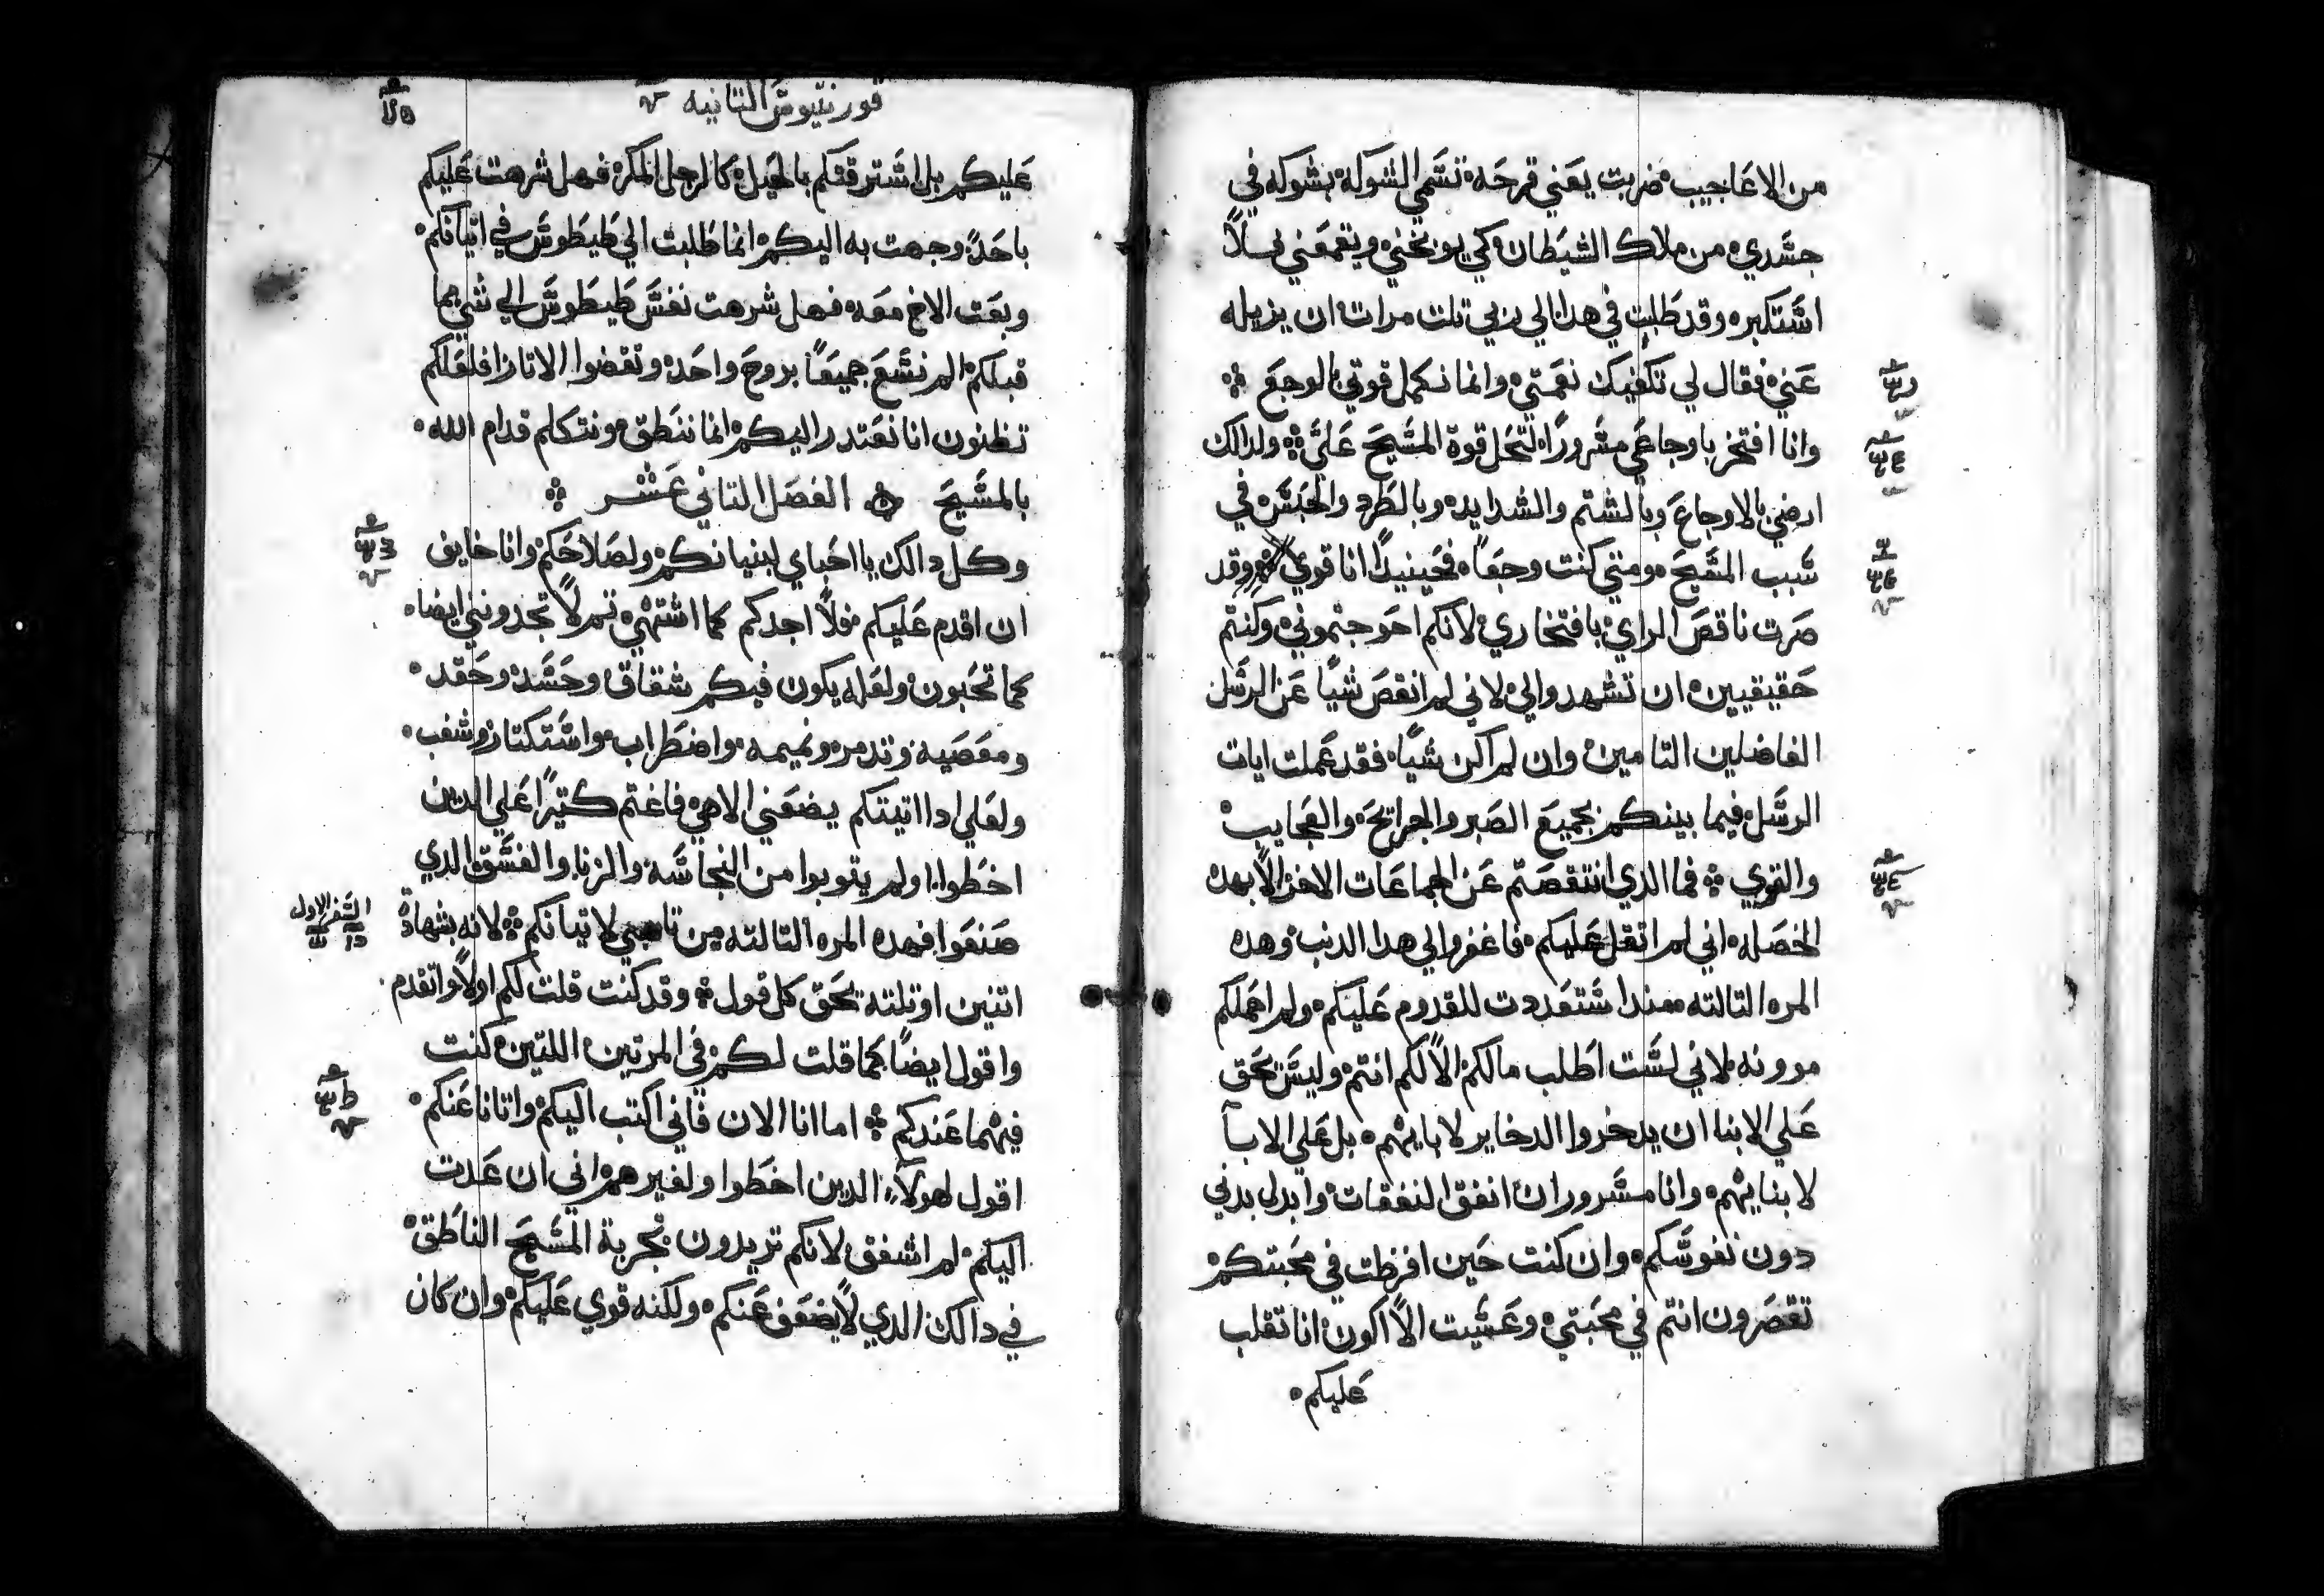 من الاعاجيب ضربت يعني قرحه تسمي الشوكه بشوكه في
جسدي من ملاك الشيطان كي يوبخني ويقمعني ليلا
استكبر وقد طلبت في هدا الي ربي تلت مرات ان يزيله
عني فقال لي تكفيك نعمتي وانما تكمل قوتي بالوجع
وانا افتخر باوجاعي مسرورًا لتحل قوة المسيح عليَّ ولدالك
ارضي بالاوجاع وبالشتم والشدايد وبالطرد والحبس في
سبب المسيح ومتي كنت وجعًا فحينيدًا انا قوي وقد
صرت ناقص الراي بافتخاري لانكم احوجتموني وكنتم
حقيقيين ان تشهدوا لي لاني لم انقص شيًا عن الرسل
الفاضلين التامين وان لم اكن شيًا فقد عملت ايات
الرسل فيما بينكم بجميع الصبر والجرايح والعجايب
والقوي فما الدي انتقصتم عن الجماعات الاخر الاَّ بهده
الخصله اني لم اتقل عليكم فاغفروا لي هدا الدنب وهده
المره التالته مند استعددت للقدوم عليكم ولم احملكم
موونه لاني لست اطلب مالكم الاَّ لكم انتم وليس يحق
علي الابنا ان يدخروا الدخاير لابايهم بل علي الابآ
لابنايهم وانا مسرور ان انفق النفقات وابدل بدني
دون نفوسكم وان كنت حين افرطت في محبتكم
تقصرون انتم في محبتي وعسيت الاَّ اكون انا تقلب
عليكم
قورنتيوس التانيه
عليكم بل استرقتكم بالحيل كالرجل المكر فهل شرهت عليكم
باحد وجهت به اليكم انما طلبت الي طيطوس في اتيانكم
وبعت الاخ معه فهل شرهت نفس طيطوس الي شي مما
قبلكم الم نسع جميعًا بروح واحد ونقضوا الاتار افلعلكم
تظنون انا نعتدر اليكم انما ننطق ونتكلم قدام الله
بالمسيح الفصل التاني عشر
وكل دالك يا احباي لبنيانكم ولصلاحكم وانا خايف
ان اقدم عليكم فلا اجدكم كما اشتهي تم لا تجدونني ايضا
كما تحبون ولعله يكون فيكم شقاق وحسد وحقد
ومعصيه وتدمر ونميمه واضطراب واستكتار وشغب
ولعلي ادا اتيتكم يضعني الاهي فاغتم كتيرًا علي الدين
اخطوا ولم يتوبوا من النجاسه والزنا والفسق الدي
صنعوا فهده المره التالته من لاتيانكم لانه بشهادة
السفر الاول
اتنين او تلته يحق كل قول وقد كنت قلت لكم اولاً واتقدم
واقول ايضًا كما قلت لكم في المرتين اللتين كنت
فيهما عندكم اما انا الان فاني اكتب اليكم وانا نا عنكم
اقول لهولاء الدين اخطوا ولغيرهم اني ان عدت
اليكم لم اشفق لانكم تريدون تجربة المسيح الناطق
في دالك الدي لا يضعف عنكم ولكنه قوي عليكم وان كان